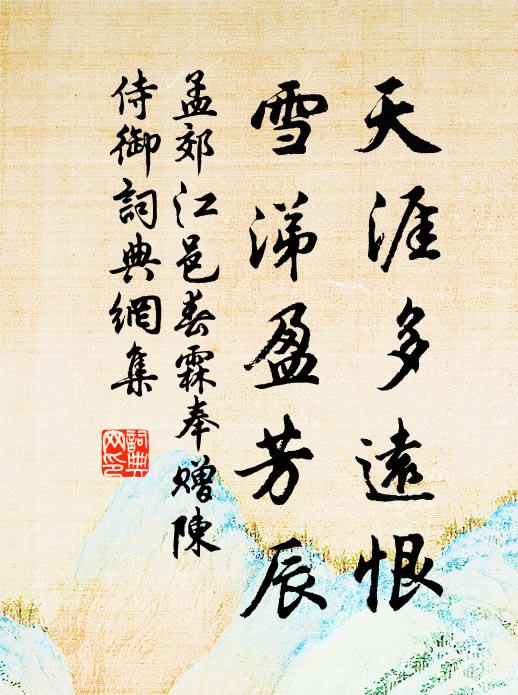 天涯多遠恨
雪涕盈芳辰
孟郊江邑春霖奉贈陳
侍御詞典網集
詞典
網印